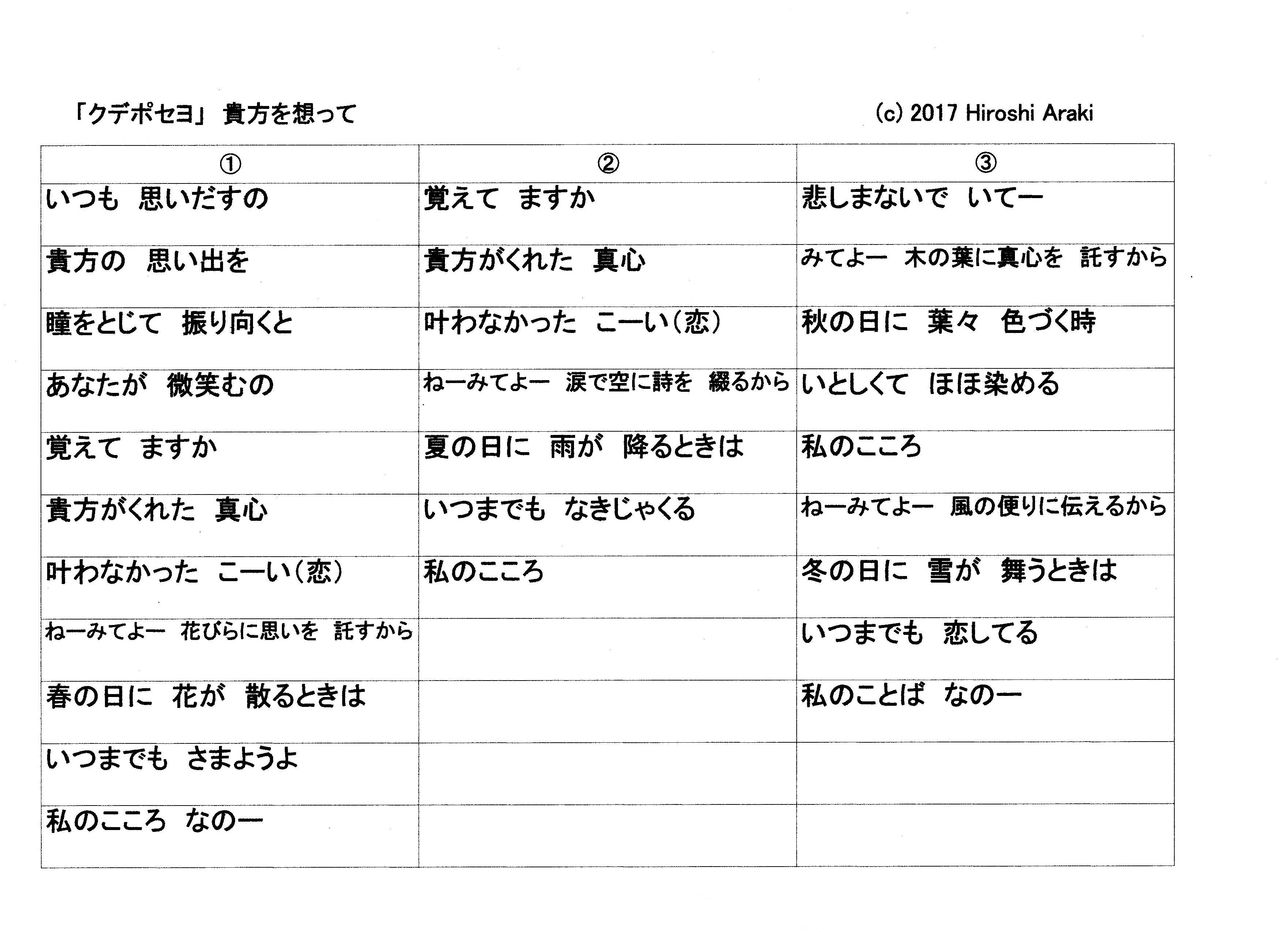 「クデポセヨ」 貴方を想って
(c) 2017 Hiroshi Araki
①
いつも 思いだすの
貴方の 思い出を
瞳をとじて 振り向くと
あなたが 微笑むの
覚えて ますか
貴方がくれた 真心
叶わなかった こーい(恋)
ねーみてよー 花びらに思いを 託すから
春の日に 花が 散るときは
いつまでも さまようよ
私のこころ なのー
②
覚えて ますか
貴方がくれた 真心
叶わなかった こーい(恋)
ねーみてよー 涙で空に詩を 綴るから
夏の日に 雨が 降るときは
いつまでも なきじゃくる
私のこころ
③
悲しまないで いてー
みてよー 木の葉に真心を 託すから
秋の日に 葉々 色づく時
いとしくて ほほ染める
私のこころ
ねーみてよー 風の便りに伝えるから
冬の日に 雪が 舞うときは
いつまでも 恋してる
私のことば なのー